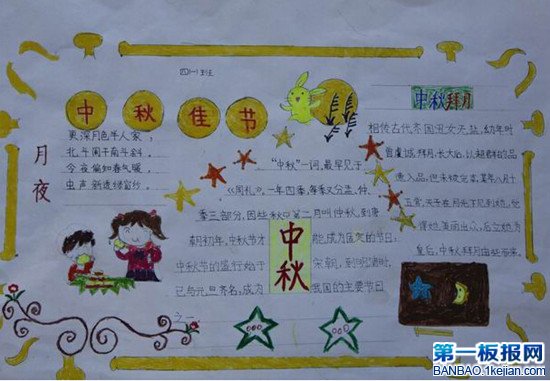 四(一)班
中秋佳节
月夜
更深月色半人家，
北斗阑干南斗斜。
今夜偏知春气暖，
虫声新透绿窗纱。
"中秋"一词，最早见于
《周礼》，一年四季，每季又分孟、仲、
季三部分，因些秋中第二月叫仲秋，到唐
朝初年，中秋节才 能成为固定的节日；
中秋节的盛行始于 宋朝，到明清时，
已与元旦齐名，成为 我国的主要节日
之一
中秋
中秋拜月
相传古代齐国丑女无盐，幼年时
曾虔诚拜月，长大后，以超群的品
德入品，但未被宠幸，某年八月十
五赏
皇后，中秋拜月由此而来。
第一板报网
BANBAO.1kejian.com